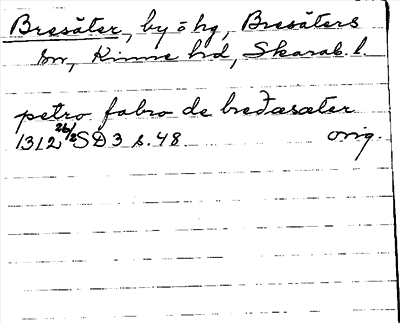 Bresäter, by = hg, Bresäters
sn, Kinne hd, Skarab. l.
petro fabro de bredæsæter
1312 26/2 SD 3 s. 48 orig.